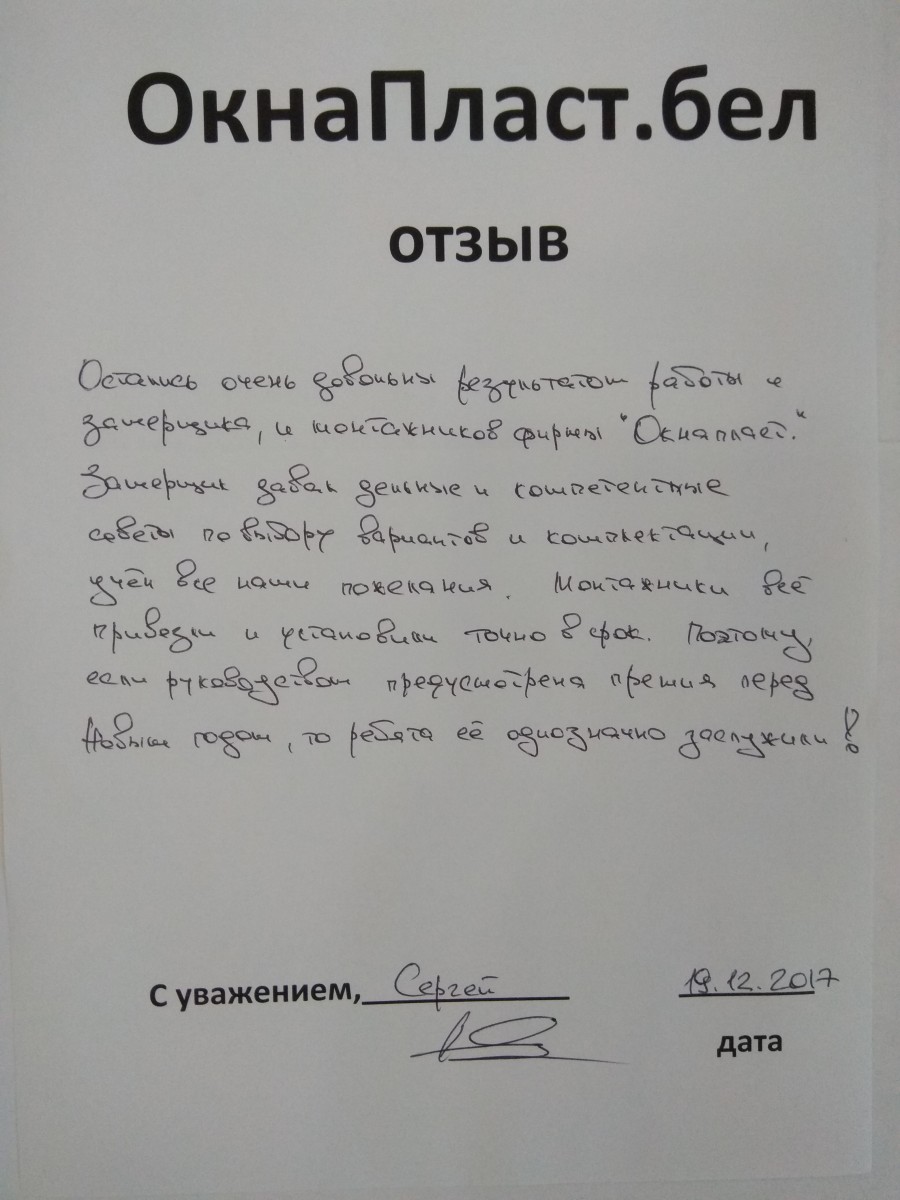 ОкнаПласт.бел
отзыв
Остались очень довольны результатом работы и
замерщика, и монтажников фирмы "Окнапласт."
Замерщик давал дельные и компетентные
советы по выбору вариантов и комплектации,
учёл все наши пожелания. Монтажники всё
привезли и установили точно в срок. Поэтому,
если руководством предусмотрена премия перед
Новым годом, то ребята её однозначно заслужили!
С уважением, Сергей 19.12.2017
дата